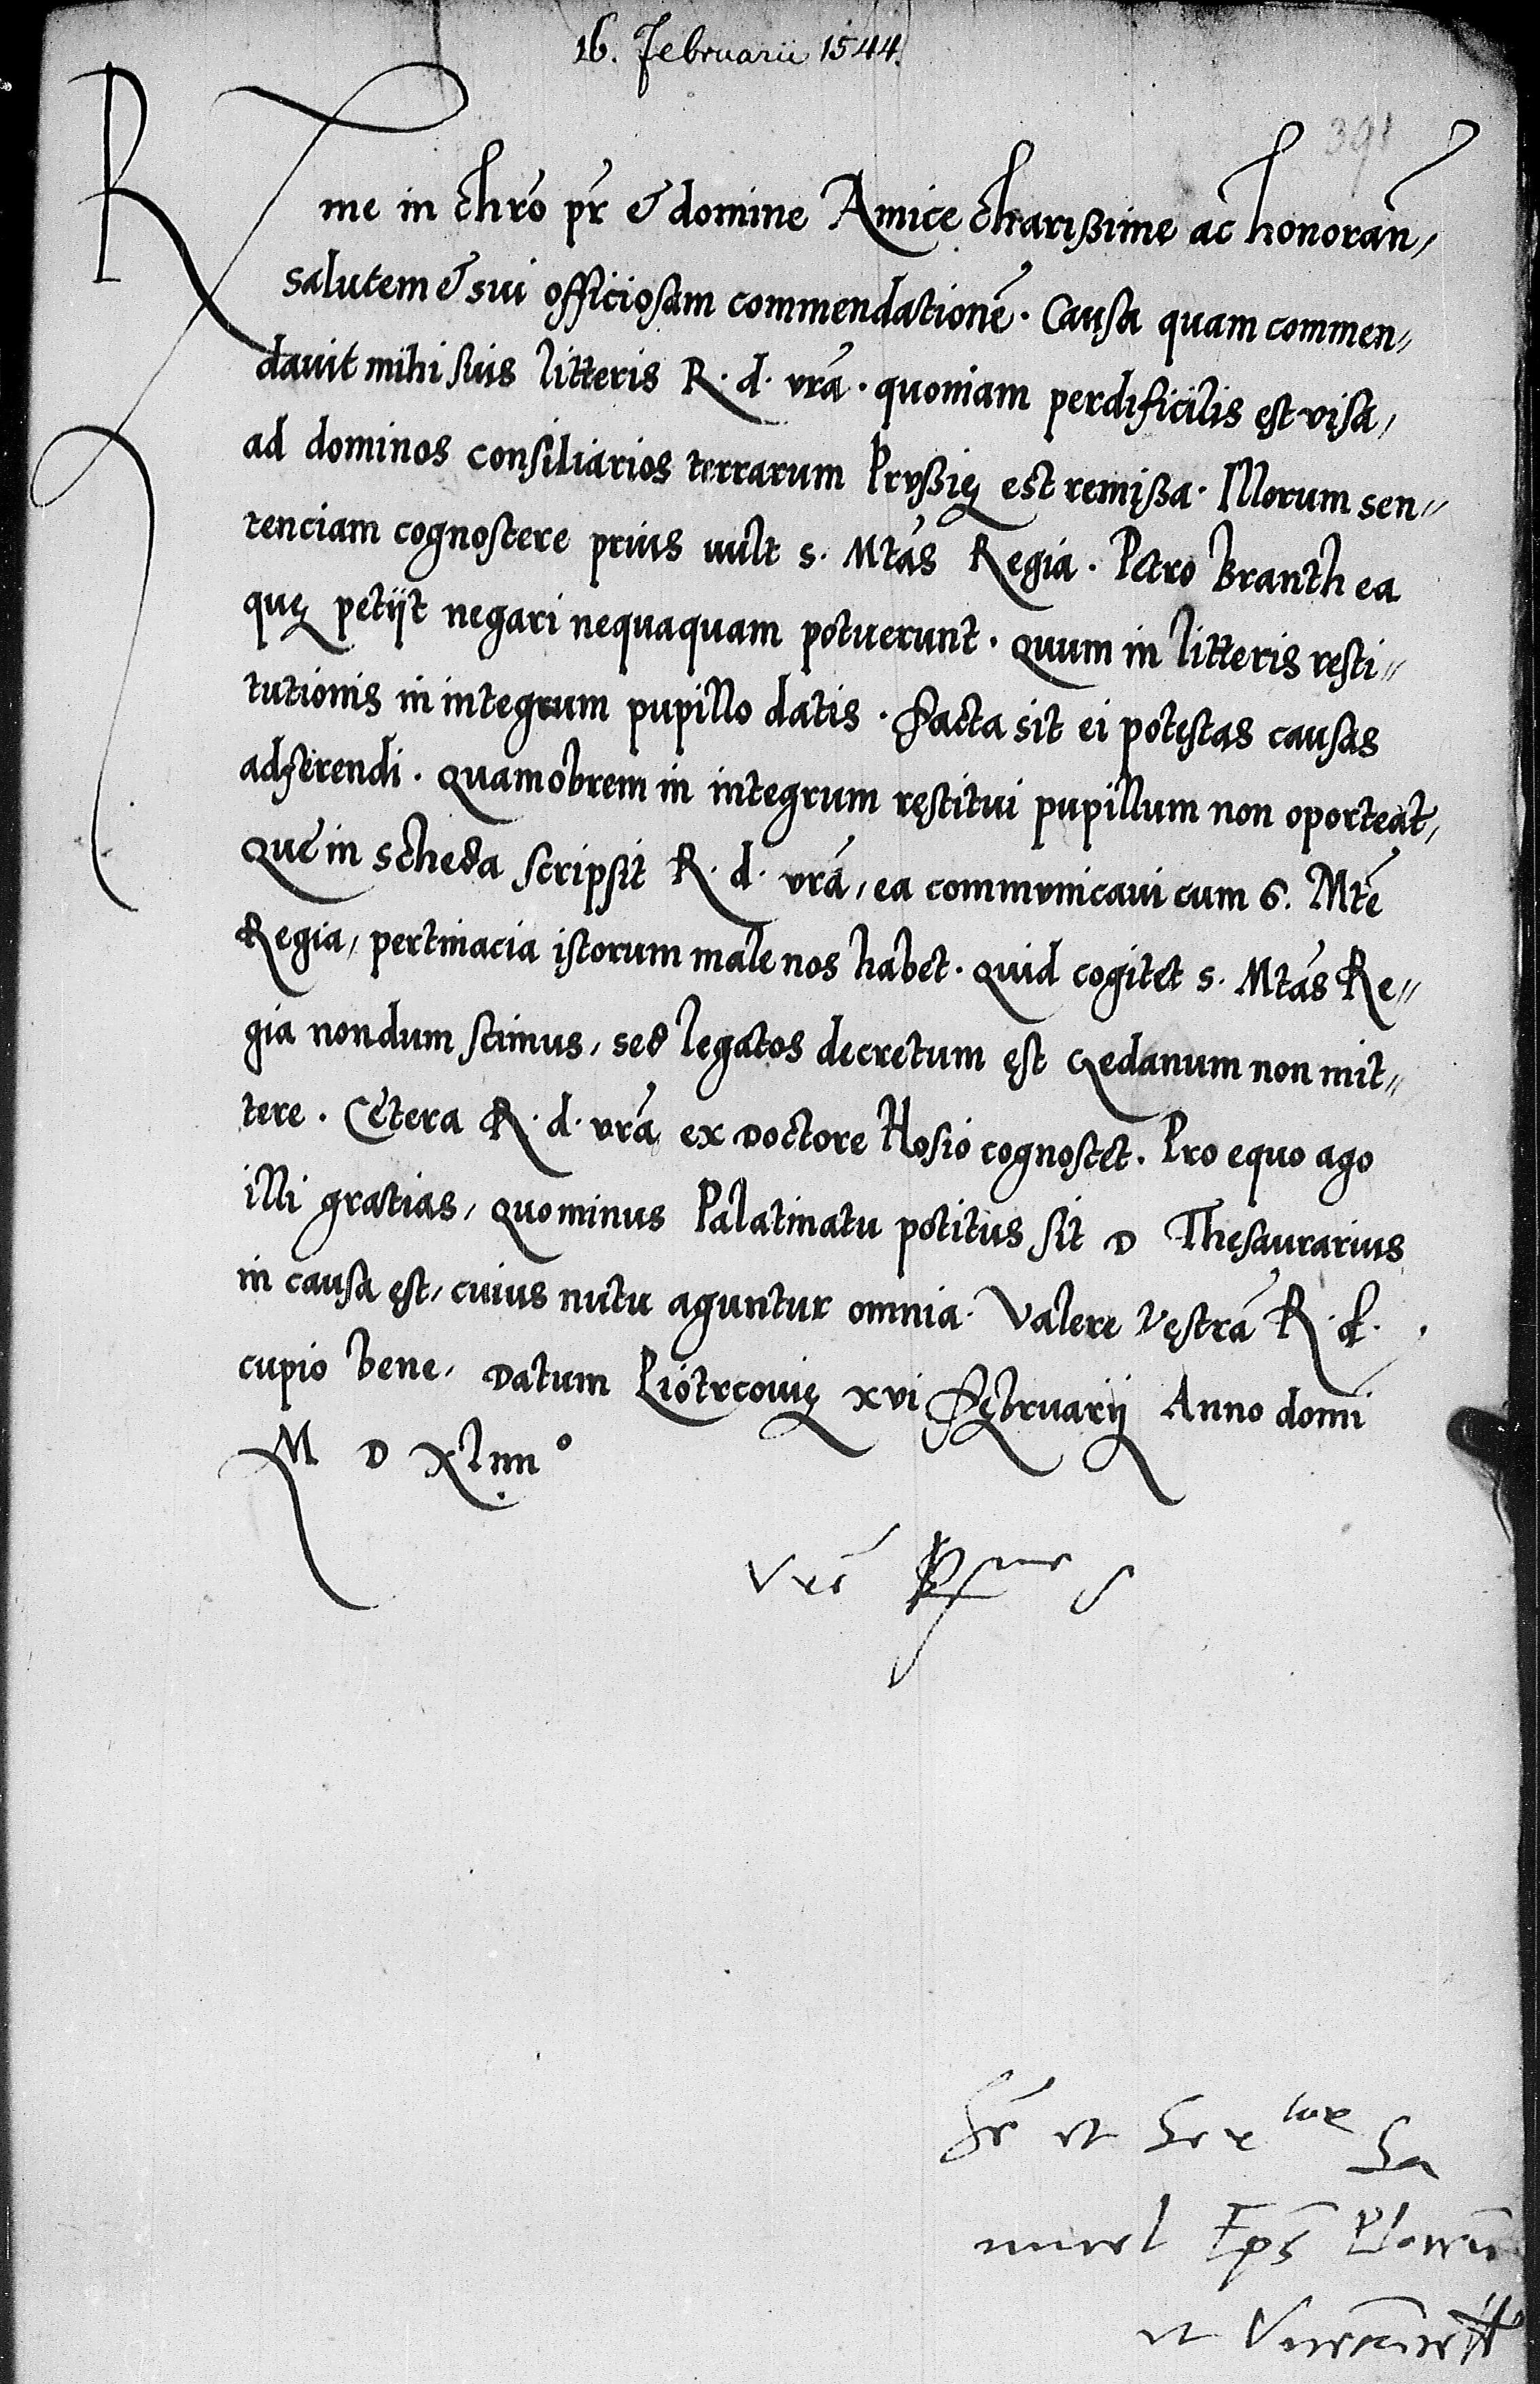 16. Februarii 1544.
391
Rme in chro pr & domine Amice charißime ac honoran,
salutem & sui officiosam commendatione. Causa quam commen„
davit mihi suis litteris R. d. vra. quoniam perdificilis est visa,
ad dominos consiliarios terrarum Prußię est remißa. Illorum sen„
tenciam cognoscere prius uult s. Mtas Regia. Petro Branth ea
quę petijt negari nequaquam potuerunt. Quum in litteris resti„
tutionis in integrum pupillo datis. Facta sit ei potestas causas
adferendi. Quamobrem in integrum restitui pupillum non oporteat,
Que in scheda scripsit R. d. vra, ea communicaui cum S. Mte
Regia, pertinacia istorum male nos habet. Quid cogitet s. Mtas Re„
gia nondum scimus, sed legatos decretum est Gedanum non mit„
tere. Cetera R. d. vra ex Doctore Hosio cognoscet. Pro equo ago
illi gratias, Quominus Palatinatu potitus sit D Thesaurarius
in causa est, cuius nutu aguntur omnia. Valere Vestra R. d.
cupio bene. Datum Piotrcouię xvi Februarij Anno domi
M D xliiii°
Vre
Fr et Ser
Sa
muel Eps Plocen
et